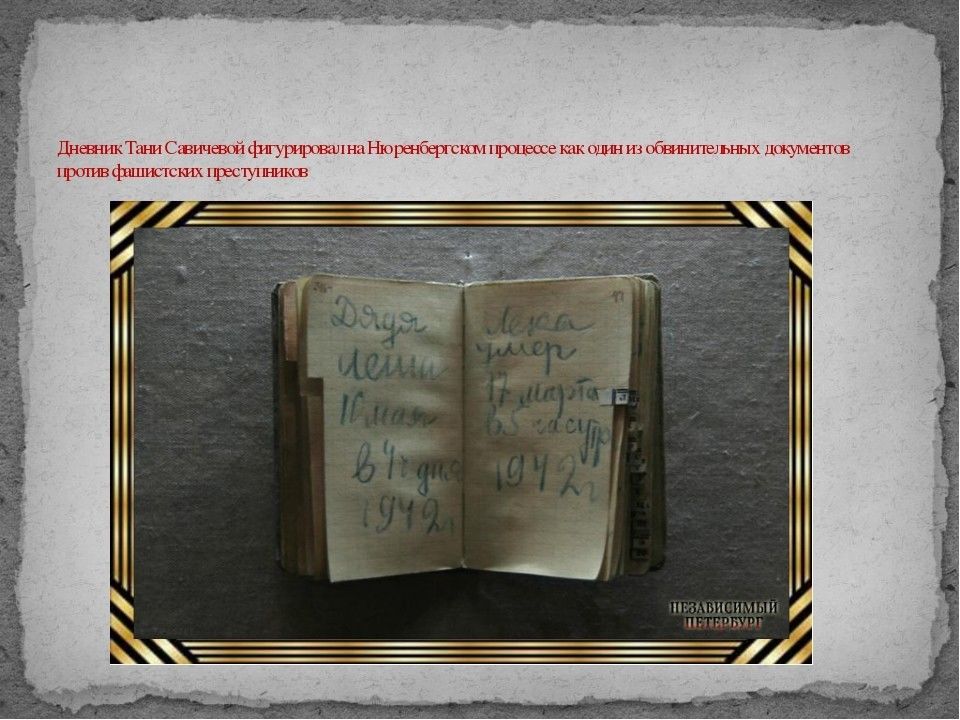 Дневник Тани Савичевой фигурировал на Нюренбергском процессе как один из обвинительных документов
против фашистских преступников
Дядя
Леша
10 мая
в 4 ч дня
1942 г
Лека
умер
17 марта
в 5 часутр
1942 г
НЕЗАВИСИМЫЙ
ПЕТЕРБУРГ